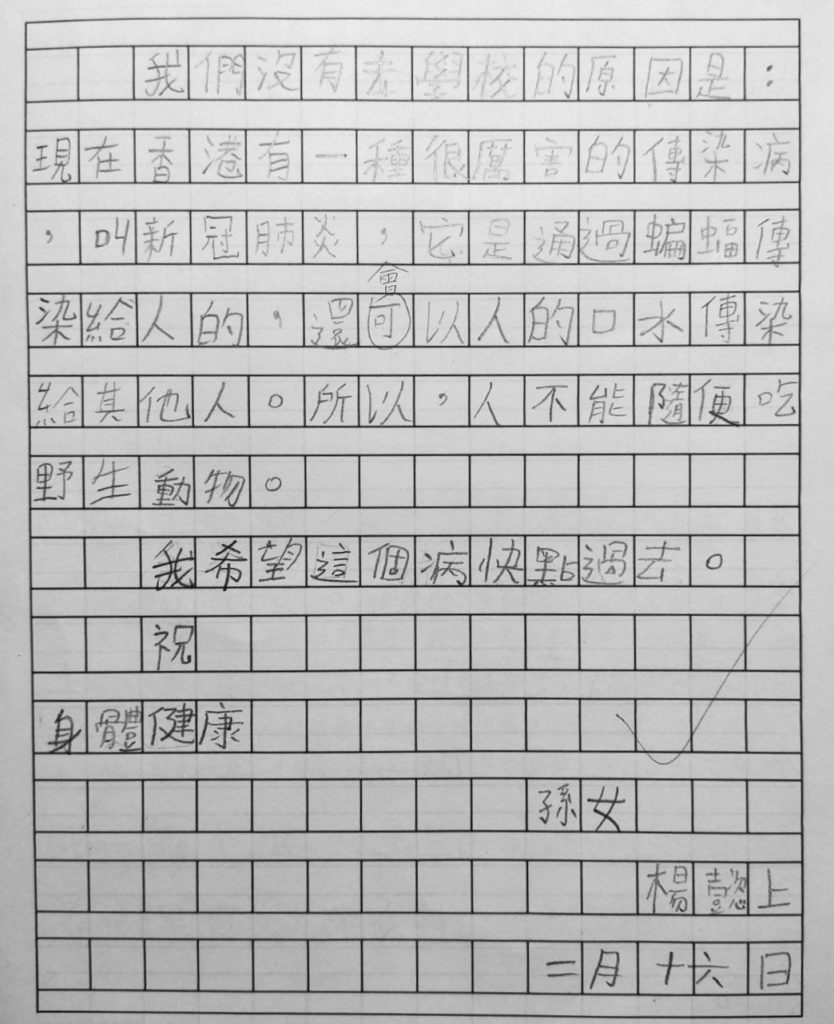 我們沒有去學校的原因是：
現在香港有一種很厲害的傳染病
，叫新冠肺炎，它是通過蝙蝠傳
會
染給人的，還可以人的口水傳染
給其他人。所以，人不能隨便吃
野生動物。
我希望這個病快點過去。
祝
身體健康
孫女
楊懿上
二月十六日